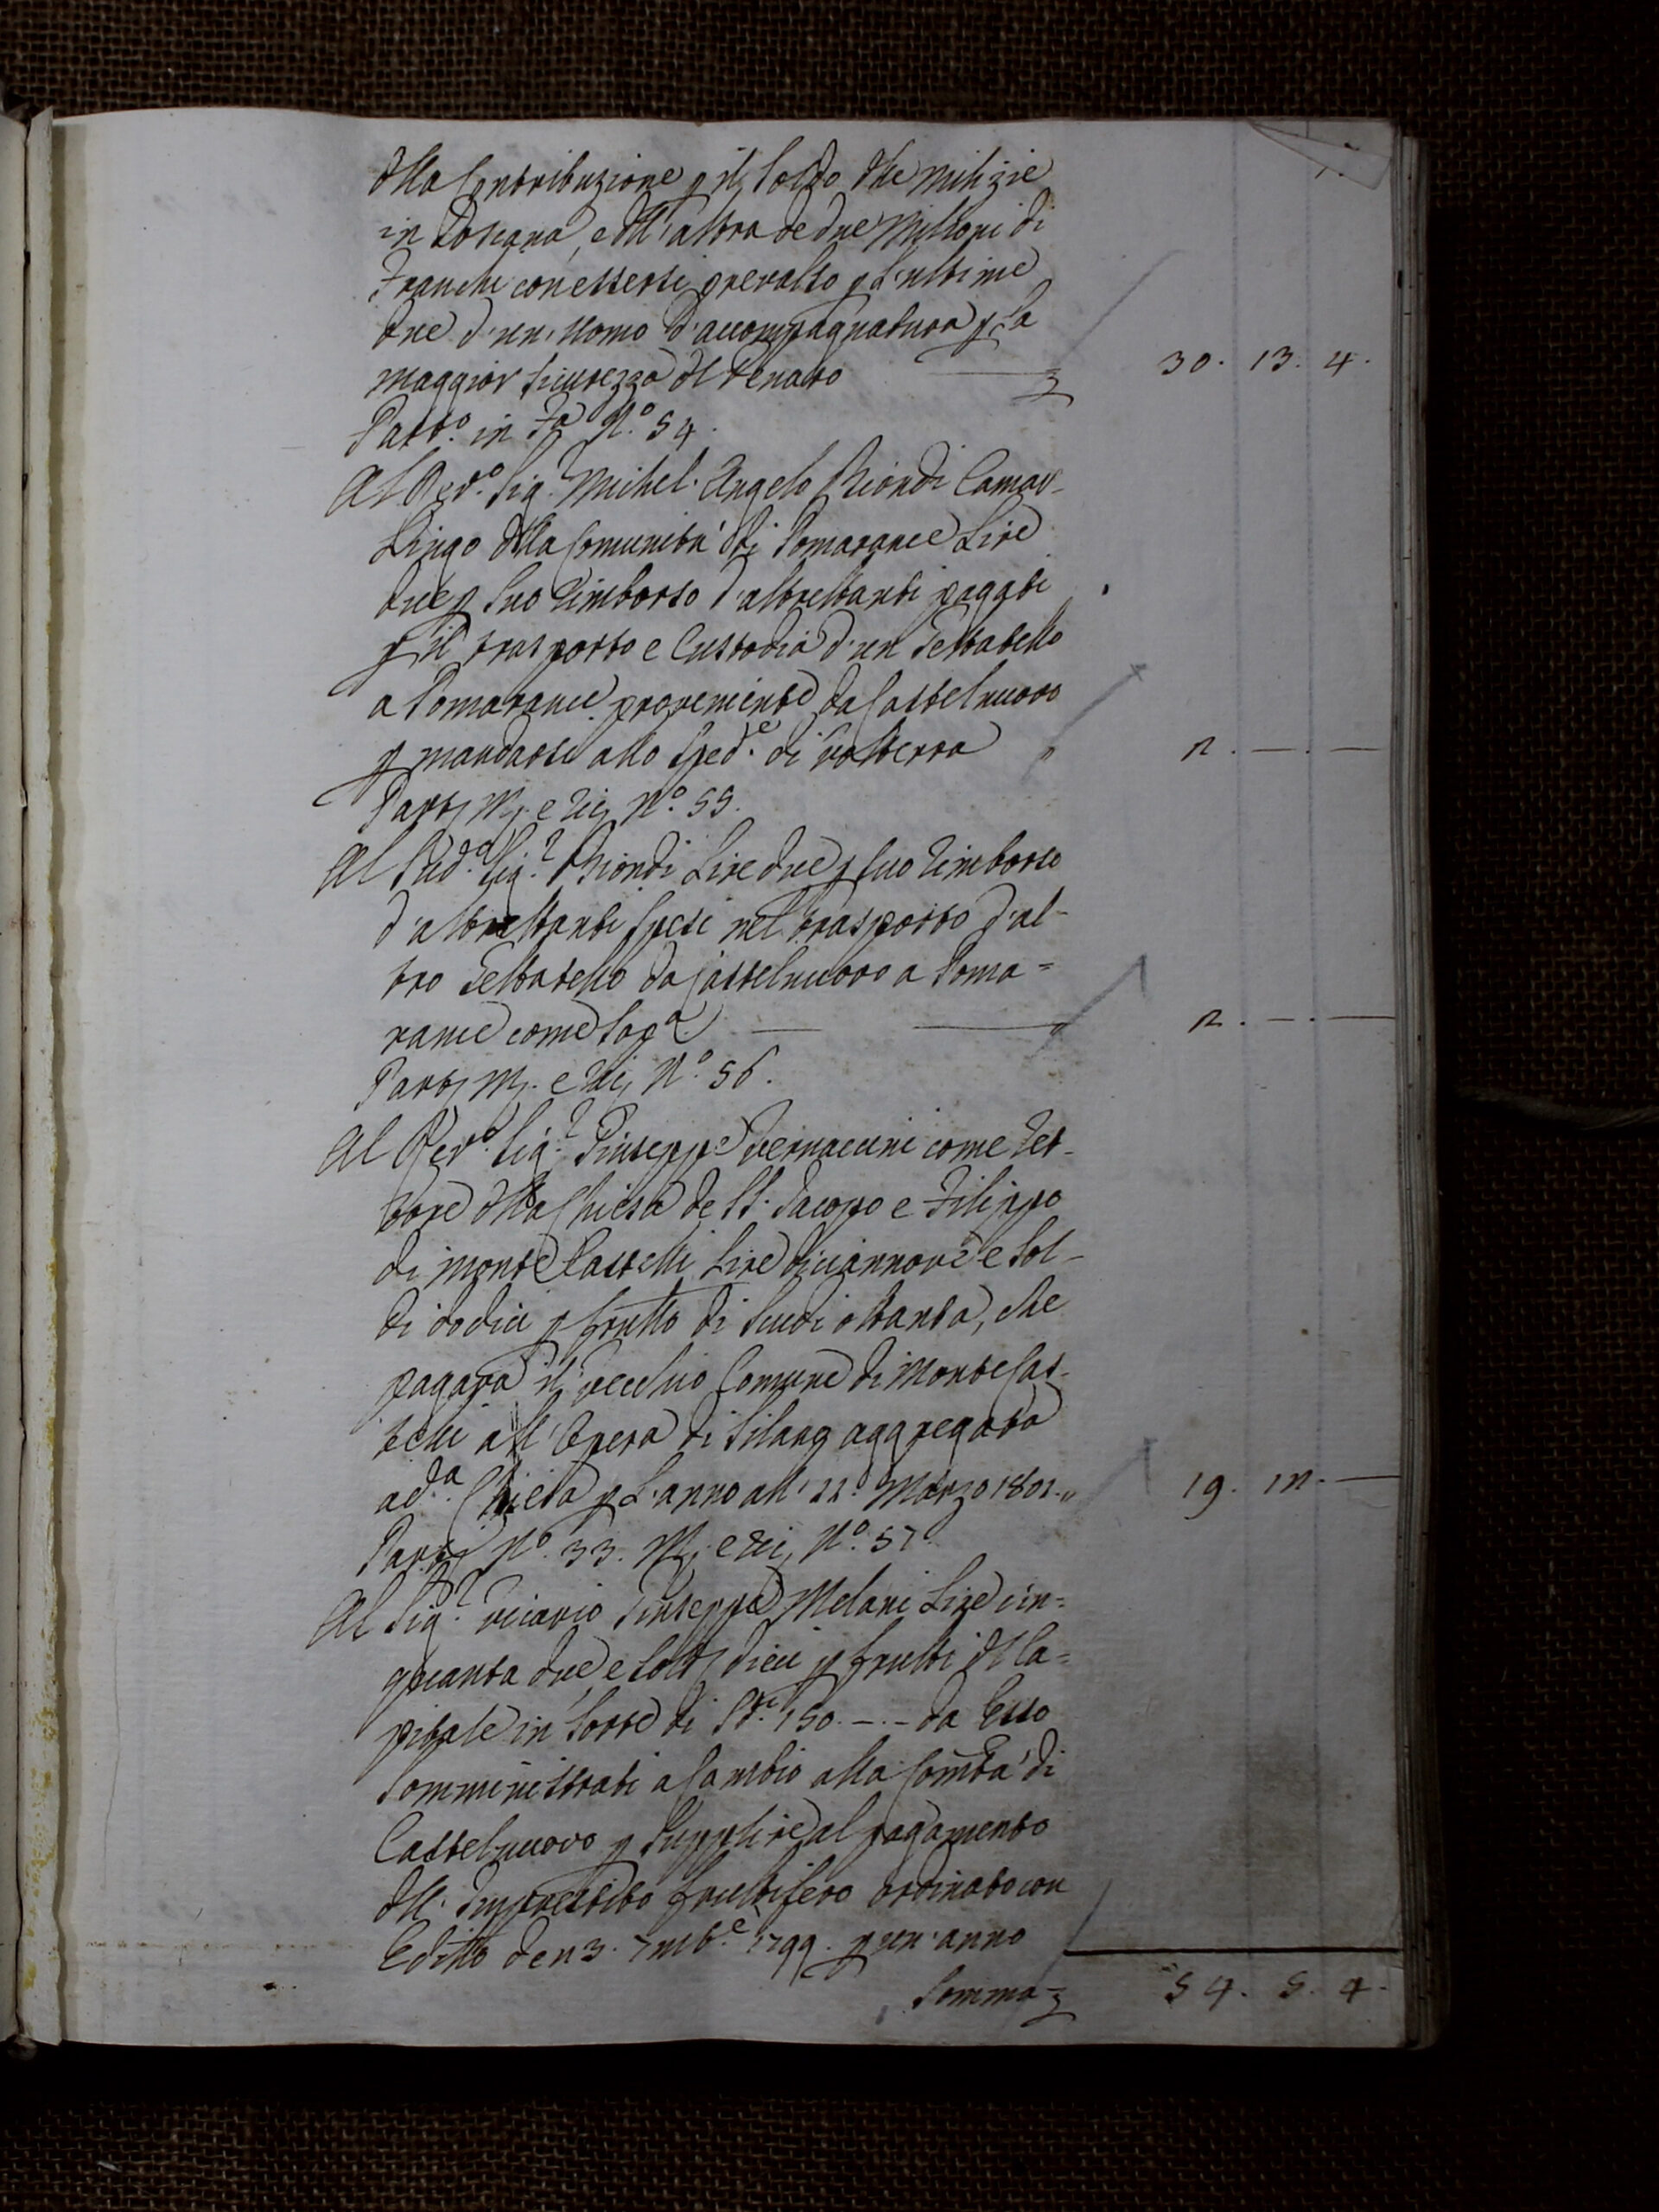 dlla Contribuzione p il Soldo dlle Milizie
in Toscana, e dll'altra de due Milioni di
Franchi con essersi prevalso p l'ultime
due d'un'uomo d'accompagnatura p la
maggior sicurezza dl denaro 30. 13. 4.
Part.o in F.a N.o 54.
Al Rev.o Sig.r Michel. Angelo Biondi Camar-
lingo dlla Comunità di Pomarance Lire
due p suo rimborso d'altrettanti pagati
p il trasporto e Custodia d'un Gettatello
a Pomarance proveniente da Castelnuovo
p mandarsi allo Sped.e di Volterra " 2. — . —
Part M. e Ric, N.o 55.
Al Sud.o Sig.r Biondi Lire due p suo rimborso
d'altrettanti spesi nel trasporto d'al-
tro Gettatello da Castelnuovo a Poma=
rance come Sop.a — " 2. — . —
Part M. e Ric, N.o 56.
Al Rev.o Sig.r Giuseppe Vernaccini come Ret-
tore dlla Chiesa de SS. Jacopo e Filippo
di Monte Castelli Lire diciannove e Sol-
di dodici p frutto di Scudi ottanta, che
pagava il vecchio Comune di Monte Cas-
telli all'Opera di Silano aggregata
a d.a Chiesa p l'anno all' 22. Marzo 1801. " 19. 12. —
Part N.o 33. M. e Ric, N.o 57.
Al Sig.r Vicario Giuseppe Melani Lire cin=
quanta due e Sold dieci p frutti dl Ca=
pitale in Sorte di Sc.di 150. —.— da Esso
somministrati a Cambio alla Com̃tà di
Castelnuovo p supplire al pagamento
dll'Imprestito fruttifero ordinato con
Editto de 23. 7mb.e 1799. p un'anno
Somma 54. 5. 4.